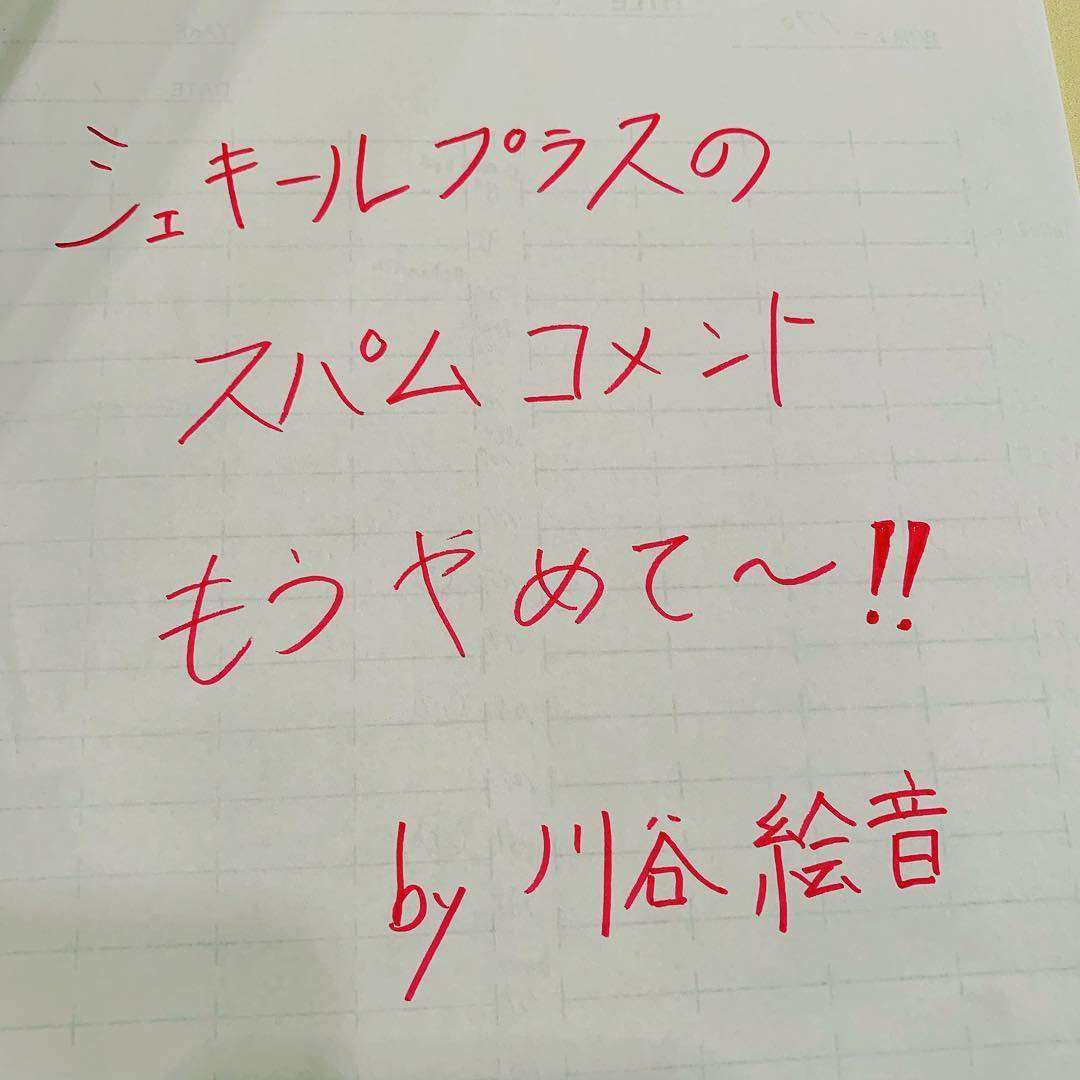 シェキールプラスの
スパムコメント
もうやめて〜!!
by 川谷絵音